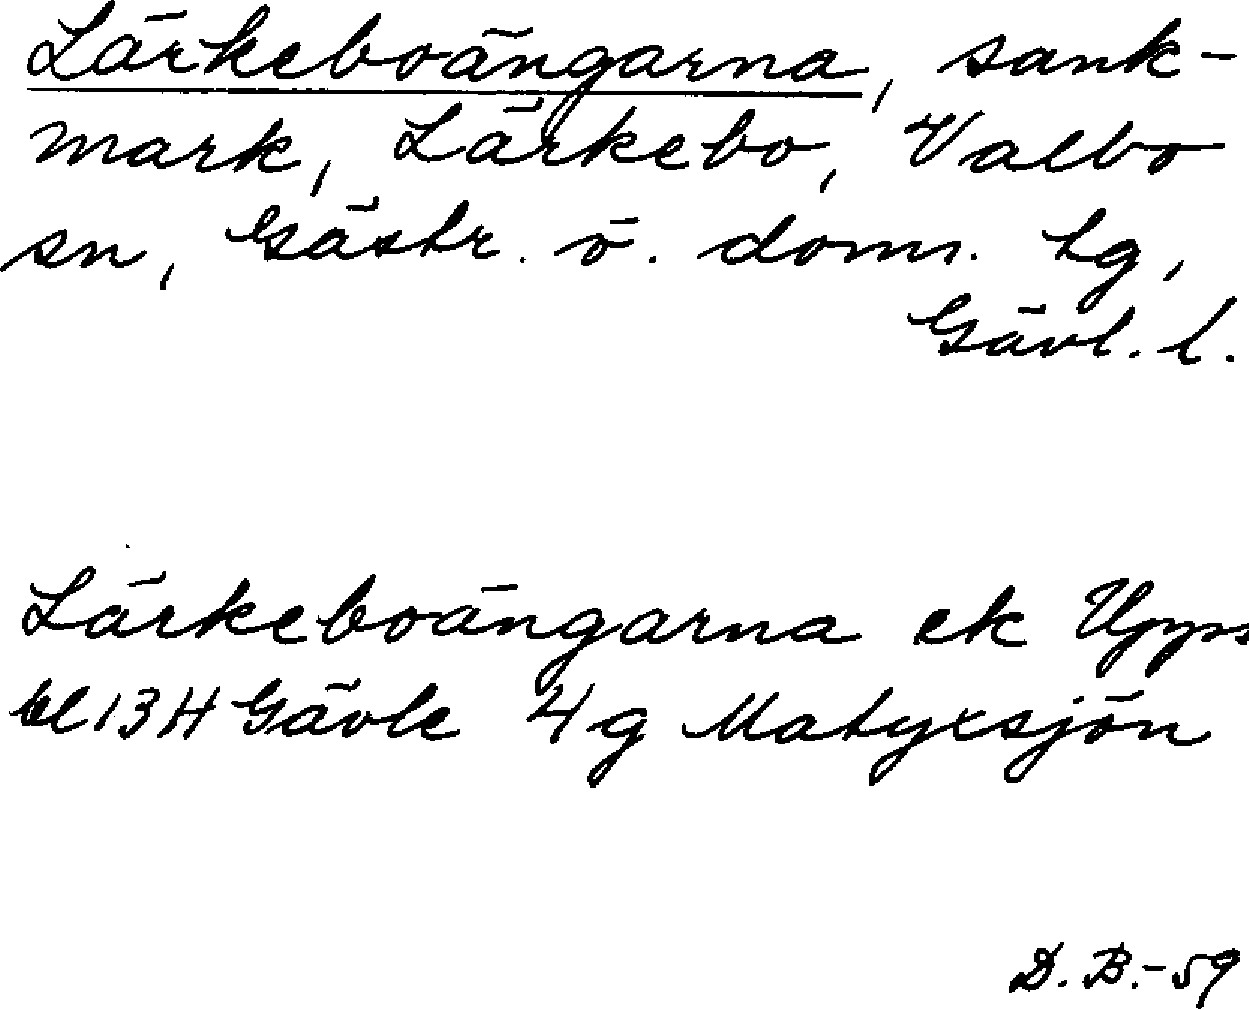 Lärkeboängarna, sank-
mark, Lärkebo, Valbo
sn, Gästr. ö. doms. tg,
Gävl. l.
Lärkeboängarna ek Upps
bl 13 H Gävle 4 g Matyxsjön
D. B. - 59